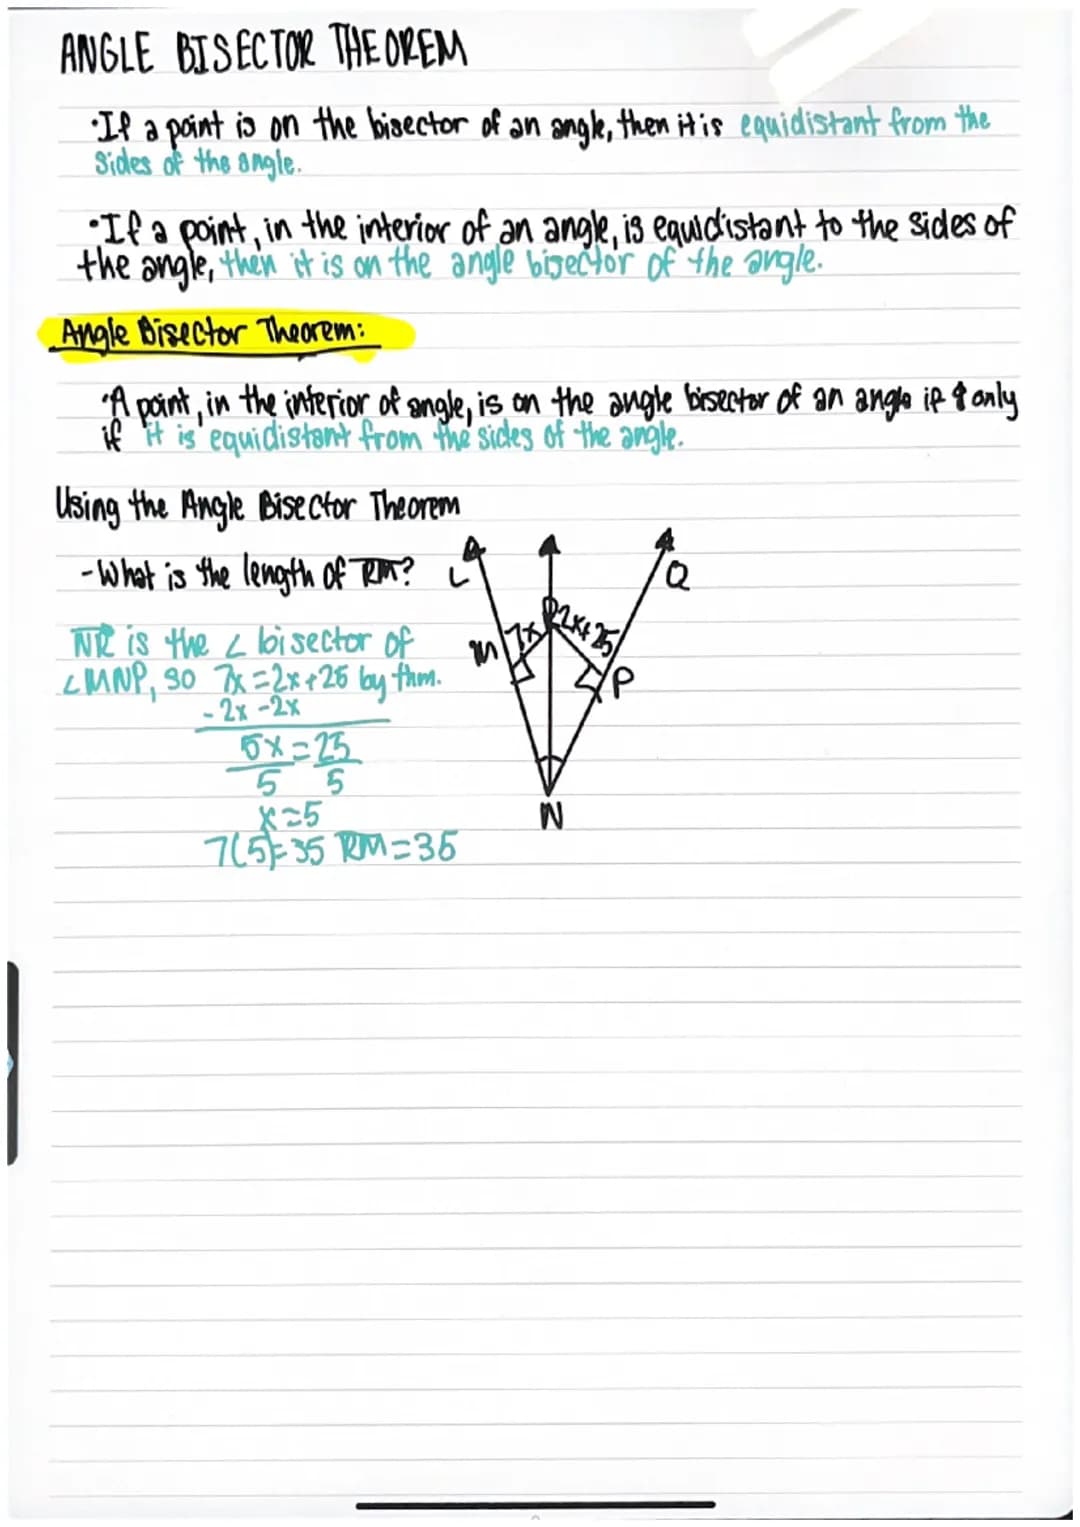 ANGLE BISECTOR THEOREM
·If a point is on the bisector of an angle, then it is equidistant from the
sides of the angle.
·If a point, in the interior of an angle, is equidistant to the sides of
the angle, then it is on the angle bisector of the angle.
Angle Bisector Theorem:
·A point, in the interior of angle, is on the angle bisector of an angle if & only
if it is equidistant from the sides of the angle.
Using the Angle Bisector Theorem
-What is the length of RM?
L
Q
NR is the ∠ bisector of
m 7x R 2x+25
∠MNP, so 7x=2x+25 by thm.
P
-2x -2x
5x=25
5 5
x=5
N
7(5)=35 RM=35